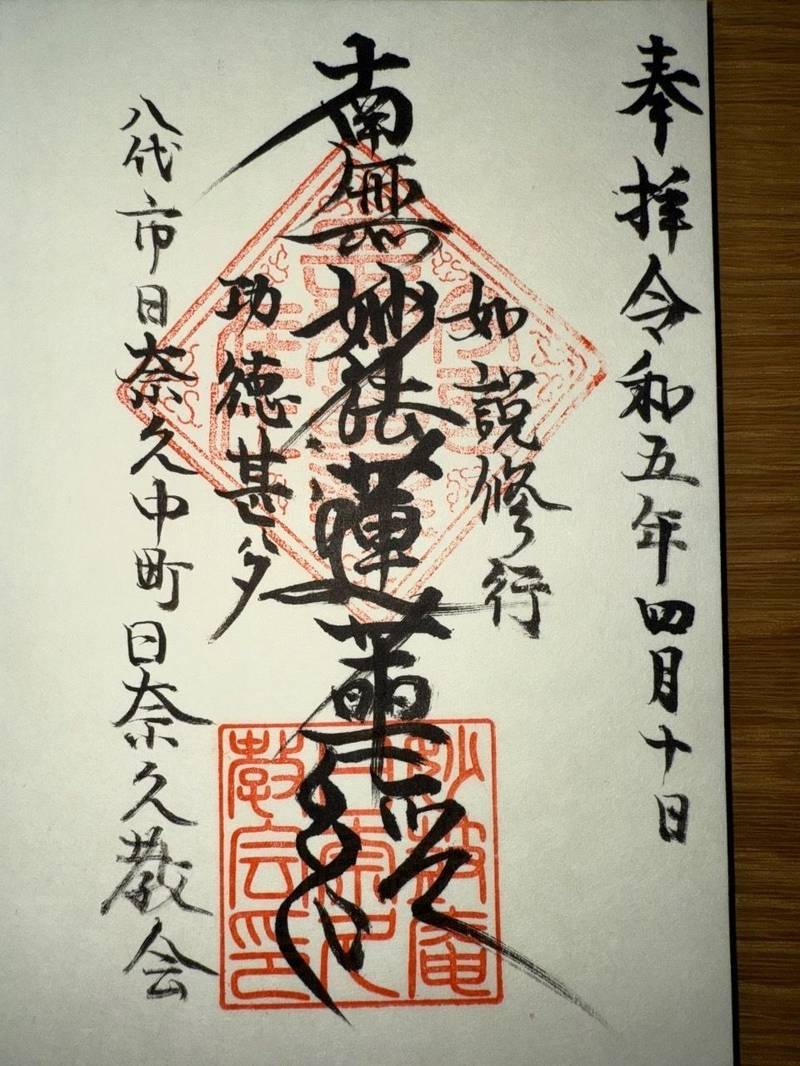 奉拝令和五年四月十日
如説修行
南無妙法蓮華経
功徳甚多
八代市日奈久中町日奈久教会